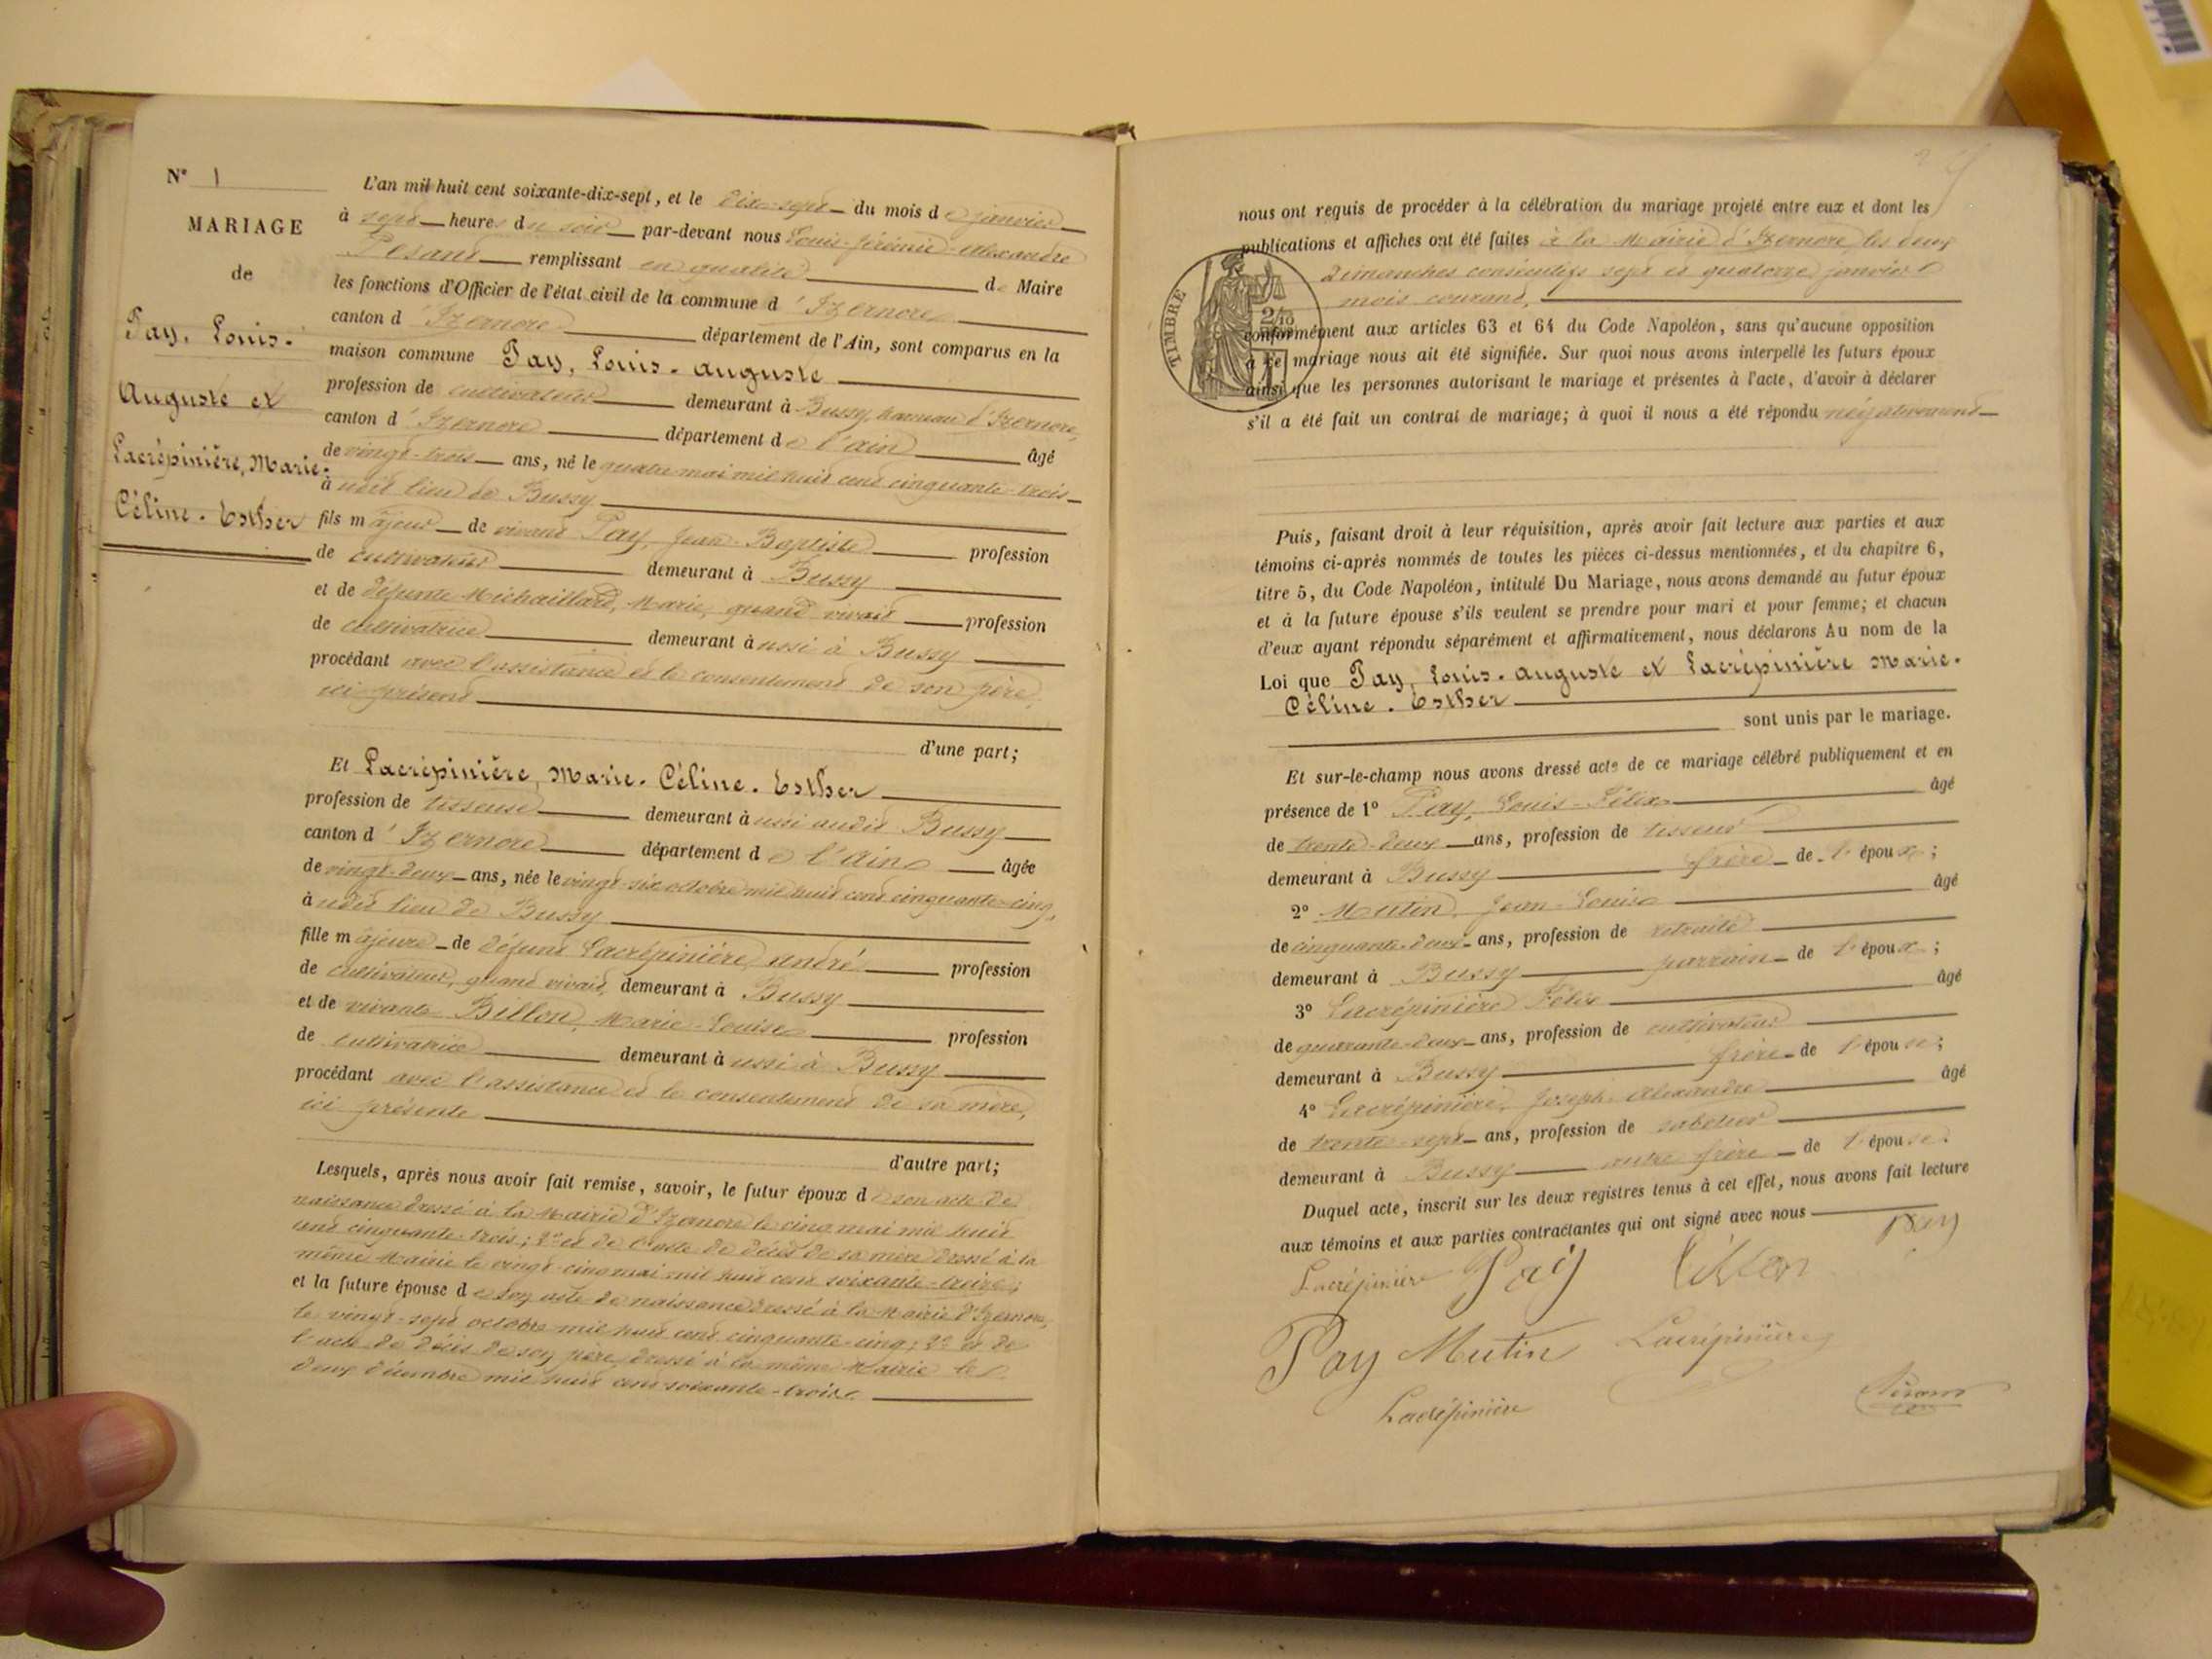 N° 1
MARIAGE
de
Pay, Louis-
Auguste et
Lacrépinière, Marie-
Céline-Esther
L'an mil huit cent soixante-dix-sept, et le dix-sept du mois de janvier
à sept heures du soir par-devant nous Louis-Jérémie-Alexandre
remplissant en qualité de Maire
les fonctions d'Officier de l'état civil de la commune d'Izernore
canton d'Izernore département de l'Ain, sont comparus en la
maison commune Pay, Louis-Auguste
profession de cultivateur demeurant à Bussy, hameau d'Izernore,
canton d'Izernore département de l'Ain âgé
de vingt-trois ans, né le quatre mai mil huit cent cinquante-trois
audit lieu de Bussy
fils majeur de vivant Pay, Jean-Baptiste profession
de cultivateur demeurant à Bussy
et de défunte Michaillard, Marie, quand vivait profession
de cultivatrice demeurant aussi à Bussy
procédant avec l'assistance et le consentement de son père,
ici présent
d'une part;
Et Lacrépinière, Marie-Céline-Esther
profession de tisseuse demeurant aussi audit Bussy
canton d'Izernore département de l'Ain âgée
de vingt-deux ans, née le vingt-six octobre mil huit cent cinquante-cinq,
audit lieu de Bussy
fille majeure de défunt Lacrépinière, André profession
de cultivateur, quand vivait, demeurant à Bussy
et de vivante Billon, Marie-Louise profession
de cultivatrice demeurant aussi à Bussy
procédant avec l'assistance et le consentement de sa mère,
ici présente
d'autre part;
Lesquels, après nous avoir fait remise, savoir, le futur époux de son acte de
naissance dressé à la Mairie d'Izernore le cinq mai mil huit
cent cinquante-trois; 2° et de l'acte de décès de sa mère dressé à la
même Mairie le vingt-cinq mai mil huit cent soixante-treize;
et la future épouse de son acte de naissance dressé à la Mairie d'Izernore,
le vingt-sept octobre mil huit cent cinquante-cinq; 2° et de
l'acte de décès de son père, dressé à la même Mairie le
deux décembre mil huit cent soixante-trois.
nous ont requis de procéder à la célébration du mariage projeté entre eux et dont les
publications et affiches ont été faites à la Mairie d'Izernore, les deux
dimanches consécutifs sept et quatorze janvier
mois courant,
TIMBRE
2/10
conformément aux articles 63 et 64 du Code Napoléon, sans qu'aucune opposition
à ce mariage nous ait été signifiée. Sur quoi nous avons interpellé les futurs époux
ainsi que les personnes autorisant le mariage et présentes à l'acte, d'avoir à déclarer
s'il a été fait un contrat de mariage; à quoi il nous a été répondu négativement
Puis, faisant droit à leur réquisition, après avoir fait lecture aux parties et aux
témoins ci-après nommés de toutes les pièces ci-dessus mentionnées, et du chapitre 6,
titre 5, du Code Napoléon, intitulé Du Mariage, nous avons demandé au futur époux
et à la future épouse s'ils veulent se prendre pour mari et pour femme; et chacun
d'eux ayant répondu séparément et affirmativement, nous déclarons Au nom de la
Loi que Pay, Louis-Auguste et Lacrépinière Marie-
Céline-Esther
sont unis par le mariage.
Et sur-le-champ nous avons dressé acte de ce mariage célébré publiquement et en
présence de 1° Pay, Louis-Félix âgé
de trente-deux ans, profession de tisseur
demeurant à Bussy frère de l'époux;
2° Mutin, Jean-Louis âgé
de cinquante-deux ans, profession de retraité
demeurant à Bussy parrain de l'époux;
3° Lacrépinière Félix âgé
de quarante-deux ans, profession de cultivateur
demeurant à Bussy frère de l'épouse;
4° Lacrépinière, Joseph-Alexandre âgé
de trente-sept ans, profession de sabotier
demeurant à Bussy autre frère de l'épouse.
Duquel acte, inscrit sur les deux registres tenus à cet effet, nous avons fait lecture
aux témoins et aux parties contractantes qui ont signé avec nous
Lacrépinière Pay Billon Pay
Pay Mutin Lacrépinière
Lacrépinière